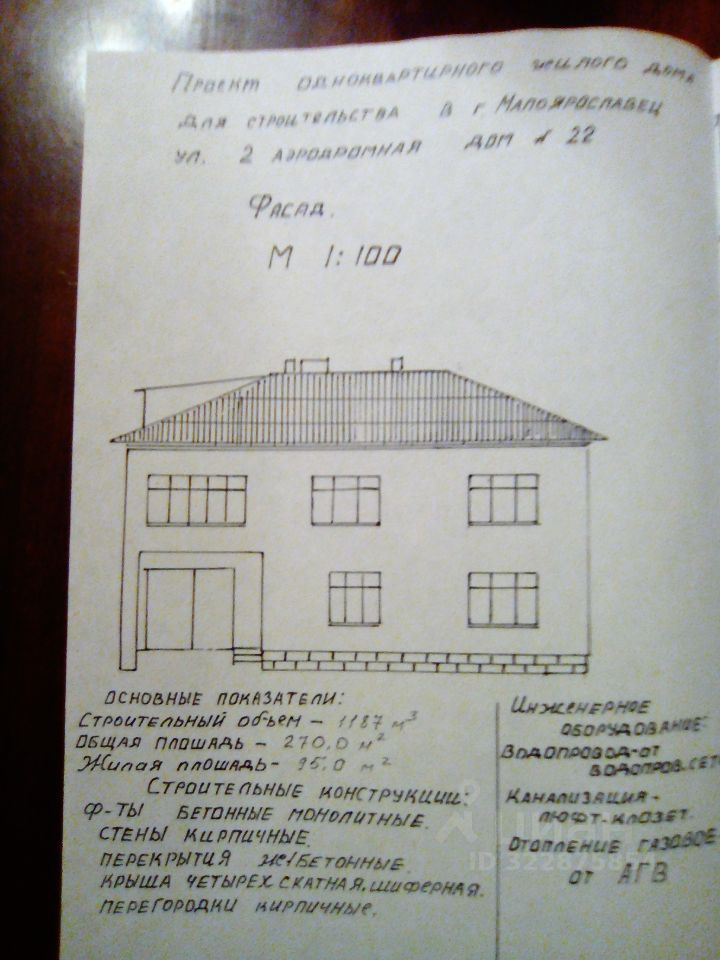 Проект одноквартирного жилого дома
для строительства в г. Малоярославец
ул. 2 аэродромная дом № 22
Фасад.
М 1:100
Основные показатели:
Строительный объем – 1187 м³
Общая площадь – 270,0 м²
Жилая площадь – 95,0 м²
Строительные конструкции:
Ф-ты бетонные монолитные.
Стены кирпичные.
Перекрытия ж/бетонные.
Крыша четырехскатная, шиферная.
Перегородки кирпичные.
Инженерное
оборудование:
Водопровод-от
водопров. сет
Канализация-
люфт-клозет.
Отопление газовое
от АГВ
циан